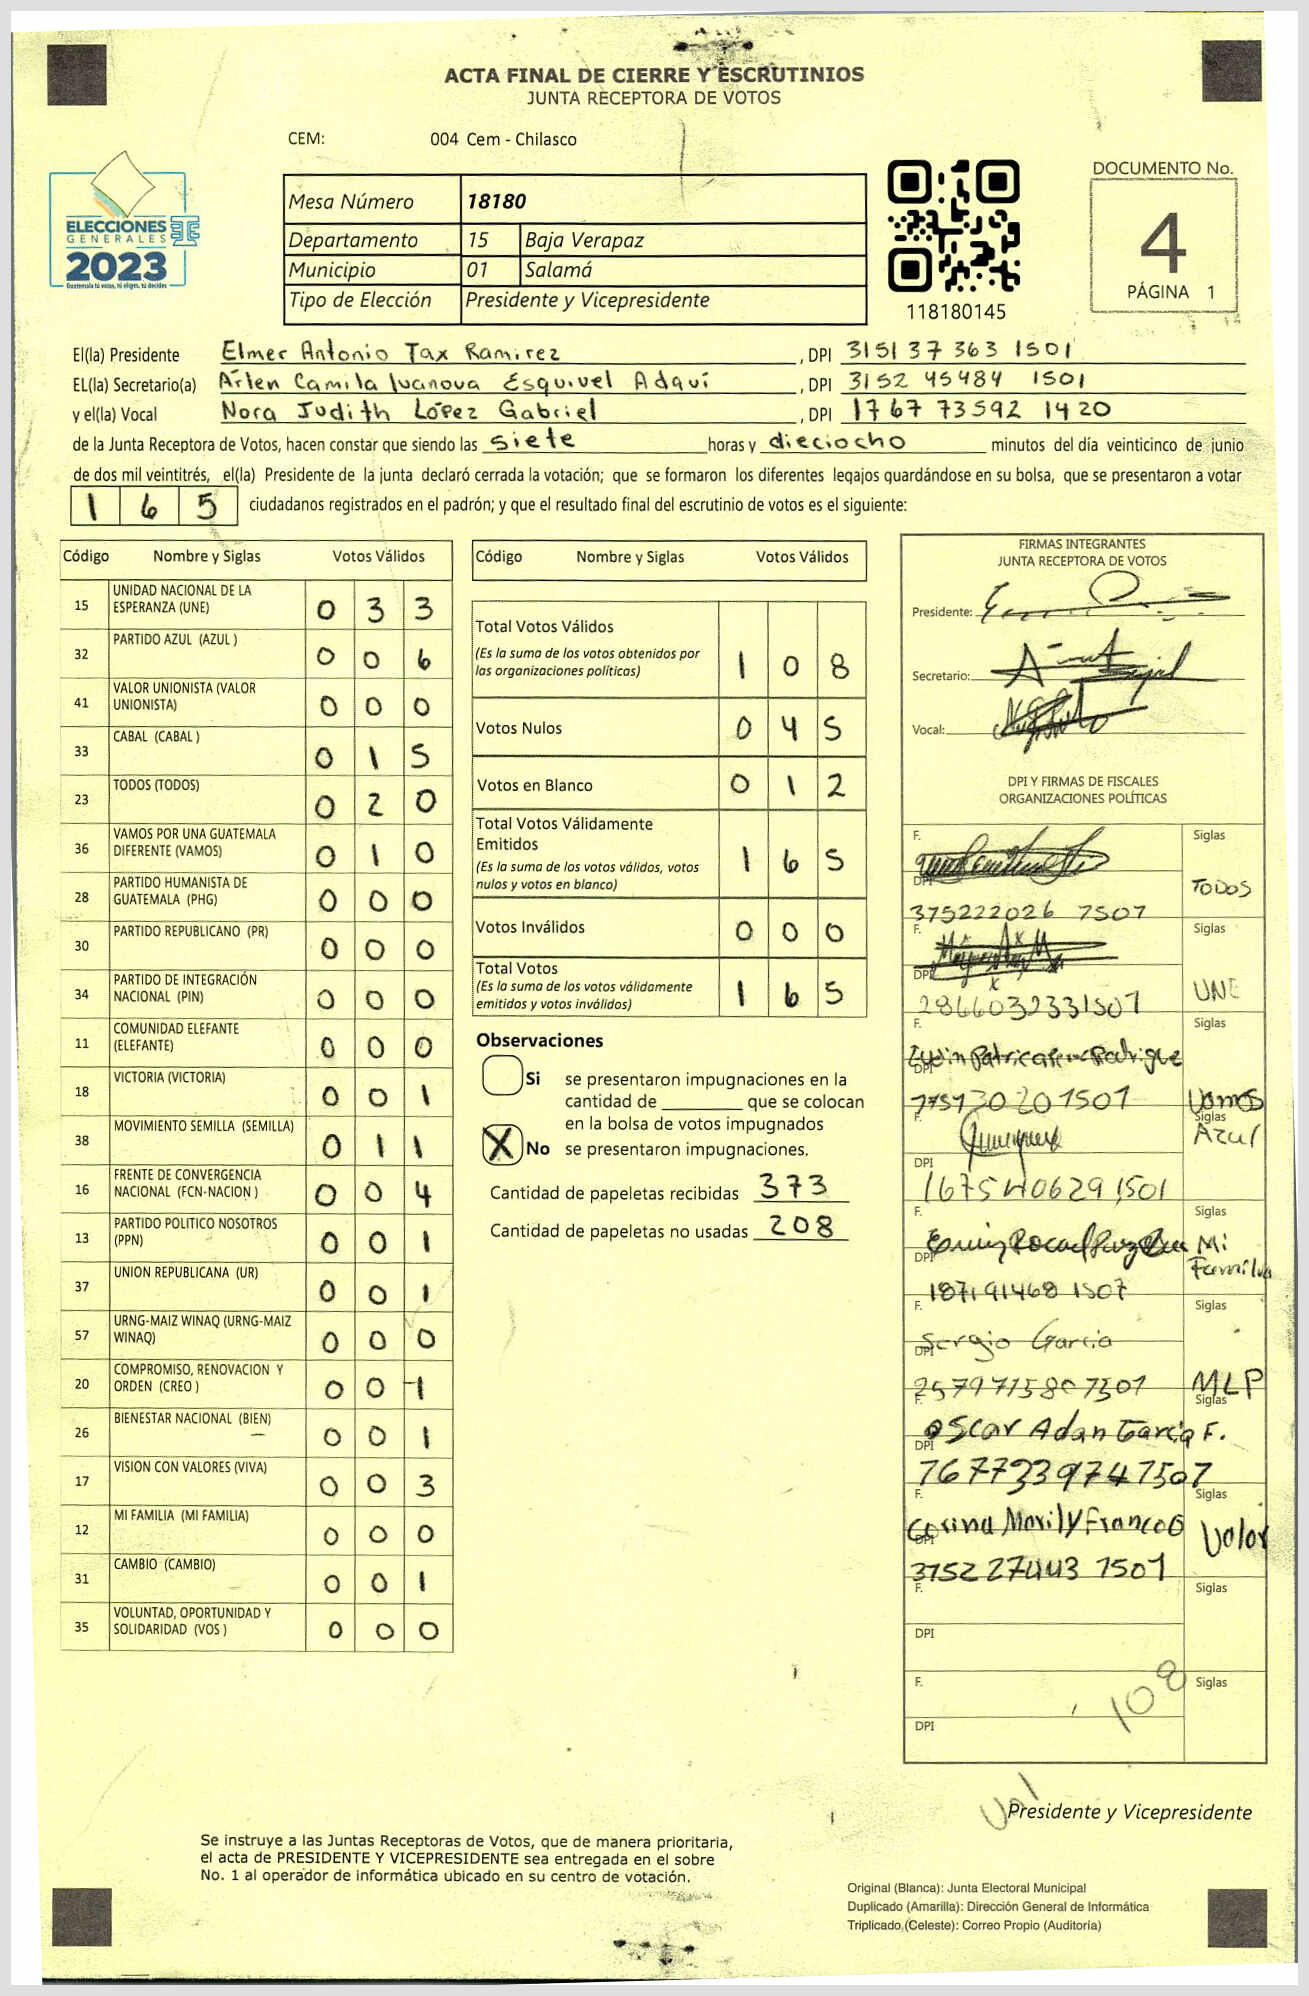 ACTA FINAL DE CIERRE Y ESCRUTINIOS
JUNTA RECEPTORA DE VOTOS
CEM: 004 Cem - Chilasco
ELECCIONES
GENERALES
2023
Guatemala tú votas, tú eliges, tú decides
Mesa Número 18180
Departamento 15 Baja Verapaz
Municipio 01 Salamá
Tipo de Elección Presidente y Vicepresidente
118180145
DOCUMENTO No.
4
PÁGINA 1
El(la) Presidente Elmer Antonio Tax Ramirez, DPI 3151 37 363 1501
EL(la) Secretario(a) Árlen Camila Ivanova Esquivel Adquí, DPI 3152 45484 1501
y el(la) Vocal Nora Judith López Gabriel, DPI 1767 73592 1420
de la Junta Receptora de Votos, hacen constar que siendo las siete horas y dieciocho minutos del día veinticinco de junio
de dos mil veintitrés, el(la) Presidente de la junta declaró cerrada la votación; que se formaron los diferentes legajos guardándose en su bolsa, que se presentaron a votar
1 6 5 ciudadanos registrados en el padrón; y que el resultado final del escrutinio de votos es el siguiente:
Código Nombre y Siglas Votos Válidos
15 UNIDAD NACIONAL DE LA ESPERANZA (UNE) 0 3 3
32 PARTIDO AZUL (AZUL ) 0 0 6
41 VALOR UNIONISTA (VALOR UNIONISTA) 0 0 0
33 CABAL (CABAL ) 0 1 5
23 TODOS (TODOS) 0 2 0
36 VAMOS POR UNA GUATEMALA DIFERENTE (VAMOS) 0 1 0
28 PARTIDO HUMANISTA DE GUATEMALA (PHG) 0 0 0
30 PARTIDO REPUBLICANO (PR) 0 0 0
34 PARTIDO DE INTEGRACIÓN NACIONAL (PIN) 0 0 0
11 COMUNIDAD ELEFANTE (ELEFANTE) 0 0 0
18 VICTORIA (VICTORIA) 0 0 1
38 MOVIMIENTO SEMILLA (SEMILLA) 0 1 1
16 FRENTE DE CONVERGENCIA NACIONAL (FCN-NACION ) 0 0 4
13 PARTIDO POLITICO NOSOTROS (PPN) 0 0 1
37 UNION REPUBLICANA (UR) 0 0 1
57 URNG-MAIZ WINAQ (URNG-MAIZ WINAQ) 0 0 0
20 COMPROMISO, RENOVACION Y ORDEN (CREO ) 0 0 1
26 BIENESTAR NACIONAL (BIEN) 0 0 1
17 VISION CON VALORES (VIVA) 0 0 3
12 MI FAMILIA (MI FAMILIA) 0 0 0
31 CAMBIO (CAMBIO) 0 0 1
35 VOLUNTAD, OPORTUNIDAD Y SOLIDARIDAD (VOS ) 0 0 0
Código Nombre y Siglas Votos Válidos
Total Votos Válidos
(Es la suma de los votos obtenidos por
las organizaciones políticas) 1 0 8
Votos Nulos 0 4 5
Votos en Blanco 0 1 2
Total Votos Válidamente
Emitidos
(Es la suma de los votos válidos, votos
nulos y votos en blanco) 1 6 5
Votos Inválidos 0 0 0
Total Votos
(Es la suma de los votos válidamente
emitidos y votos inválidos) 1 6 5
Observaciones
Si se presentaron impugnaciones en la
cantidad de ________ que se colocan
en la bolsa de votos impugnados
X No se presentaron impugnaciones.
Cantidad de papeletas recibidas 373
Cantidad de papeletas no usadas 208
FIRMAS INTEGRANTES
JUNTA RECEPTORA DE VOTOS
Presidente:
Secretario:
Vocal:
DPI Y FIRMAS DE FISCALES
ORGANIZACIONES POLÍTICAS
F. Siglas
DPI TODOS
375222026 7507
F. Siglas
DPI UNE
2866032331507
F. Siglas
DPI
775130201501 Vamos
F. Siglas
Azul
DPI
F. Siglas
DPI Mi Familia
187191468 1507
F. Siglas
Sergio Garcia
DPI
2579715807301 MLP
F. Siglas
Oscar Adan Garcia F.
DPI
7677339747507
F. Siglas
Corina Marily Franco G
DPI Valor
3752 27443 7507
F. Siglas
DPI
F. Siglas
108
DPI
Val
Presidente y Vicepresidente
Se instruye a las Juntas Receptoras de Votos, que de manera prioritaria,
el acta de PRESIDENTE Y VICEPRESIDENTE sea entregada en el sobre
No. 1 al operador de informática ubicado en su centro de votación.
Original (Blanca): Junta Electoral Municipal
Duplicado (Amarilla): Dirección General de Informática
Triplicado (Celeste): Correo Propio (Auditoría)